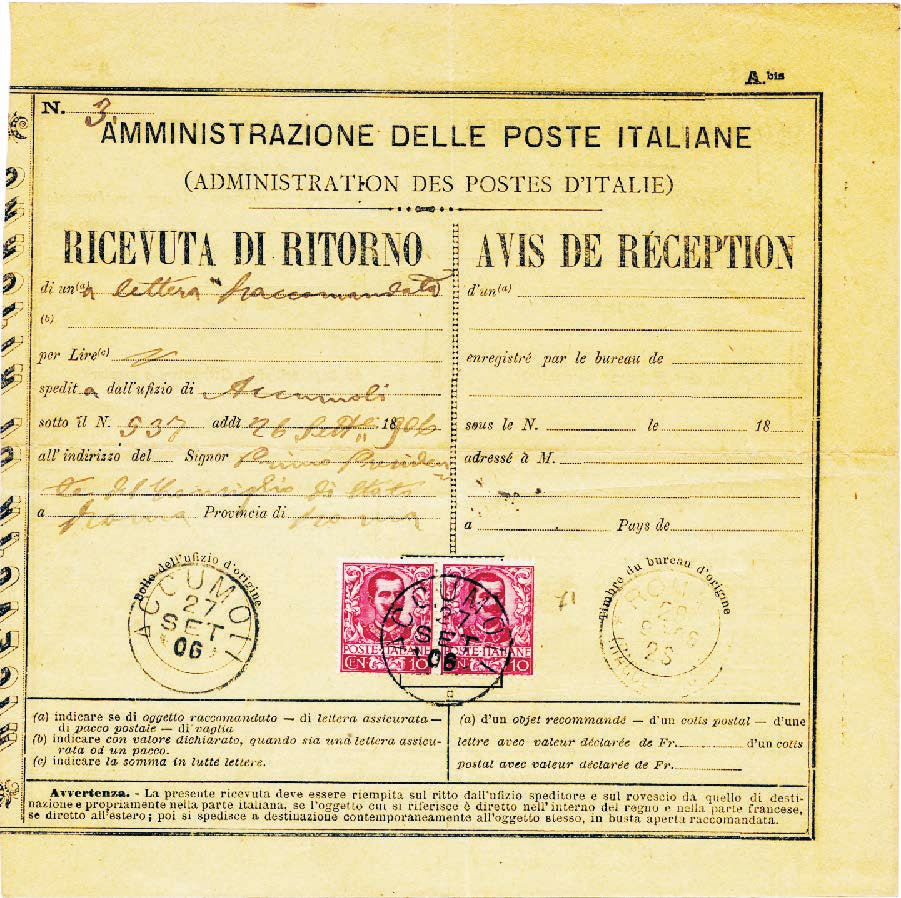 A.bis
N. 3
AMMINISTRAZIONE DELLE POSTE ITALIANE
(ADMINISTRATION DES POSTES D'ITALIE)
RICEVUTA DI RITORNO
di un(a) a lettera raccomandata
(b)
per Lire(c)
spedit a dall'ufizio di Accumoli
sotto il N. 537 addì 26 Sett 18 906
all'indirizzo del Signor Primo Presiden
te del Consiglio di Stato
a Roma Provincia di Roma
AVIS DE RÉCEPTION
d'un(a)
enregistré par le bureau de
sous le N. le 18
adressé à M.
a Pays de
Bollo dell'ufizio d'origine
ACCUMOLI
27
SET
06
POSTE ITALIANE
CEN 10
POSTE ITALIANE
10
ACCUMOLI
27
SET
06
Timbre du bureau d'origine
ROMA
(a) indicare se di oggetto raccomandato — di lettera assicurata —
di pacco postale — di vaglia
(b) indicare con valore dichiarato, quando sia una lettera assicu-
rata od un pacco.
(c) indicare la somma in tutte lettere.
(a) d'un objet recommandé — d'un colis postal — d'une
lettre avec valeur déclarée de Fr. d'un colis
postal avec valeur déclarée de Fr.
Avvertenza. - La presente ricevuta deve essere riempita sul ritto dall'ufizio speditore e sul rovescio da quello di desti-
nazione e propriamente nella parte italiana, se l'oggetto cui si riferisce è diretto nell'interno del regno e nella parte francese,
se diretto all'estero; poi si spedisce a destinazione contemporaneamente all'oggetto stesso, in busta aperta raccomandata.
RICEVUTA DI RITORNO